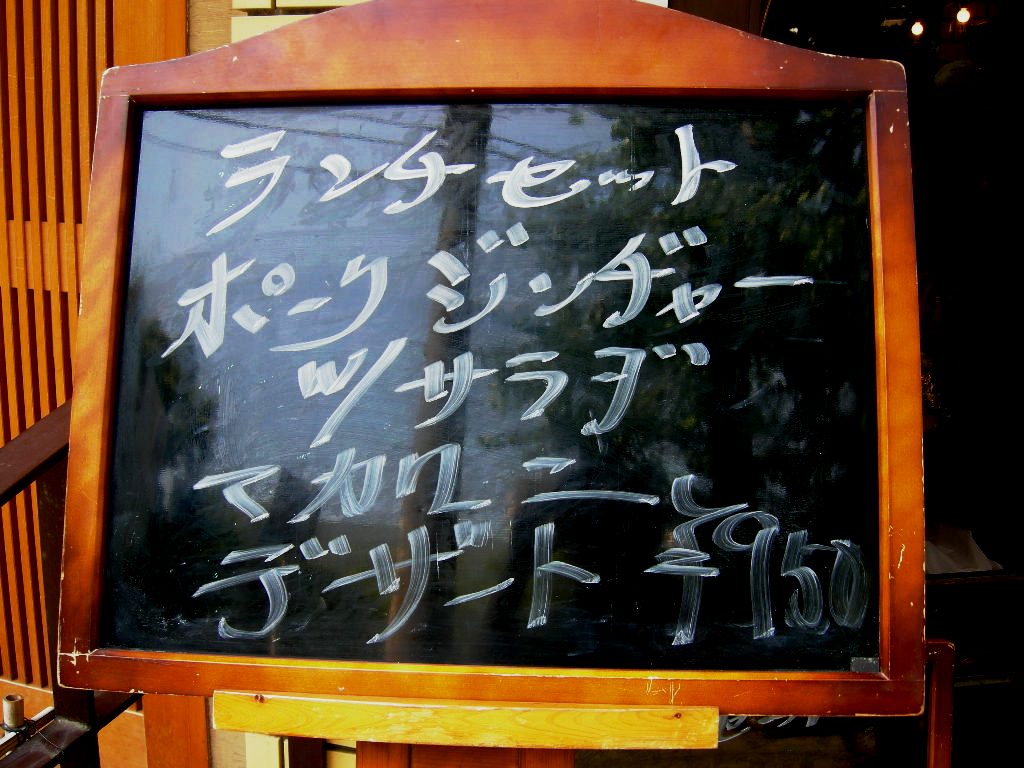 ランチセット
ポークジンジャー
ツナサラダ
マカロニ
デザート ¥950